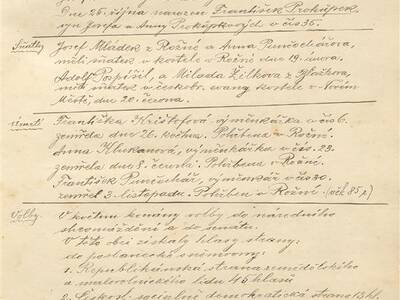 Dne 26. října narozen František Prokůpek,
syn Josefa a Anny Prokůpkových v čís 36.
Sňatky Josef Mládek z Rožné a Anna Punčochářova,
měli sňatek v kostele v Rožné dne 19. února.
Adolf Pospíšil, a Miloda Zítkova z
měli sňatek v českobr. evang kostele v Novém
Městě, dne 20. června.
Úmrtí Františka Krištofová výměnkářka v čís 6.
zemřela dne 26. května. Pohřbena v Rožné.
Anna Klusanová, výměnkářka v čís. 23.
zemřela dne 8. června. Pohřbena v Rožné.
František Punčochář, výměnkář v čís 30.
zemřel 3. listopadu. Pohřben v Rožné. (věk 85 r.)
Volby. V květnu konány volby do národního
shromáždění a do senátu.
V této obci získaly hlasy strany:
do poslanecké sněmovny:
1. Republikánská strana zemědělského
a malorolnického lidu 46 hlasů
2. Českosl. sociálně demokratická strana 13 hl.